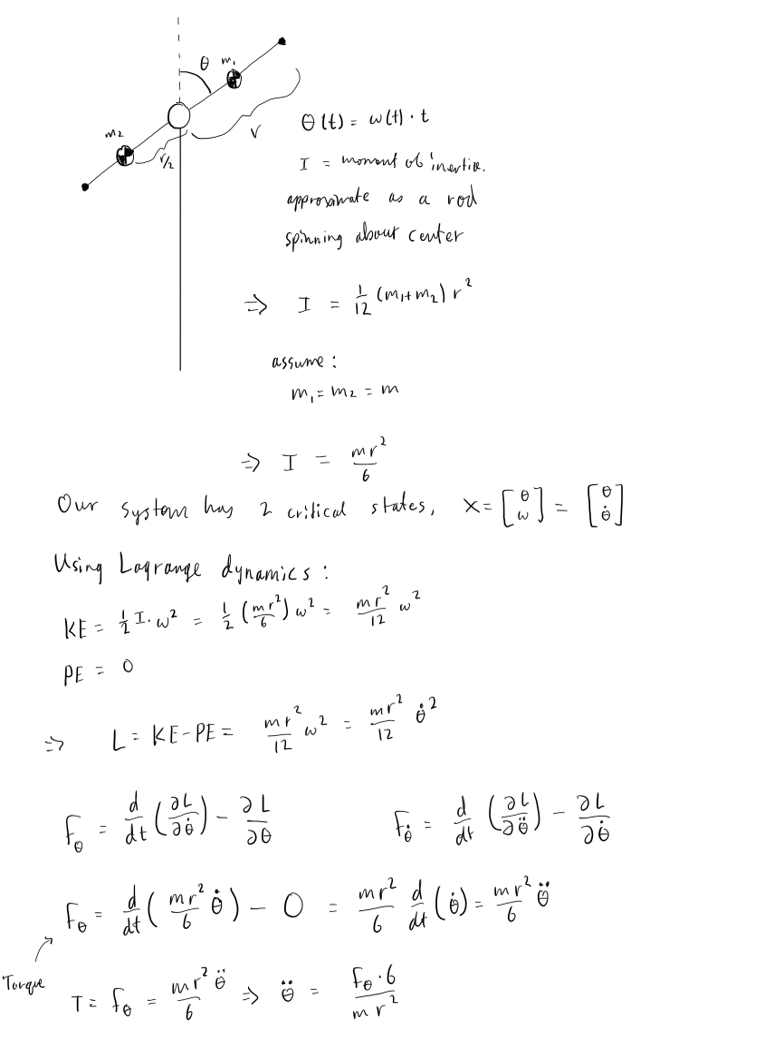 θ m₁
m₂
r
r/2
θ(t) = ω(t) · t
I = moment of inertia.
approximate as a rod
spinning about center
⇒ I = 1/12 (m₁+m₂) r²
assume :
m₁ = m₂ = m
⇒ I = mr²/6
Our system has 2 critical states, X = [θ ω] = [θ θ̇]
Using Lagrange dynamics :
KE = 1/2 I · ω² = 1/2 (mr²/6) ω² = mr²/12 ω²
PE = 0
⇒ L = KE - PE = mr²/12 ω² = mr²/12 θ̇²
F_θ = d/dt (∂L/∂θ̇) - ∂L/∂θ F_θ̇ = d/dt (∂L/∂θ̈) - ∂L/∂θ̇
F_θ = d/dt (mr²/6 θ̇) - 0 = mr²/6 d/dt (θ̇) = mr²/6 θ̈
Torque
T = f_θ = mr²/6 θ̈ ⇒ θ̈ = F_θ · 6/mr²